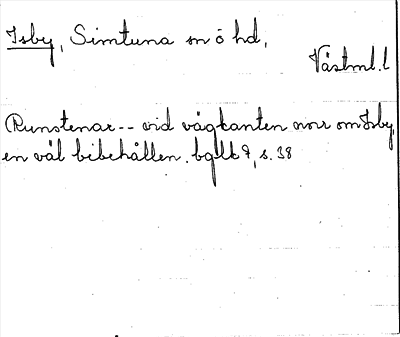 Isby, Simtuna sn ö hd,
Västml. l
Runstenar -- vid vägkanten norr om Isby,
en väl bibehållen. bgllt 9, s. 38